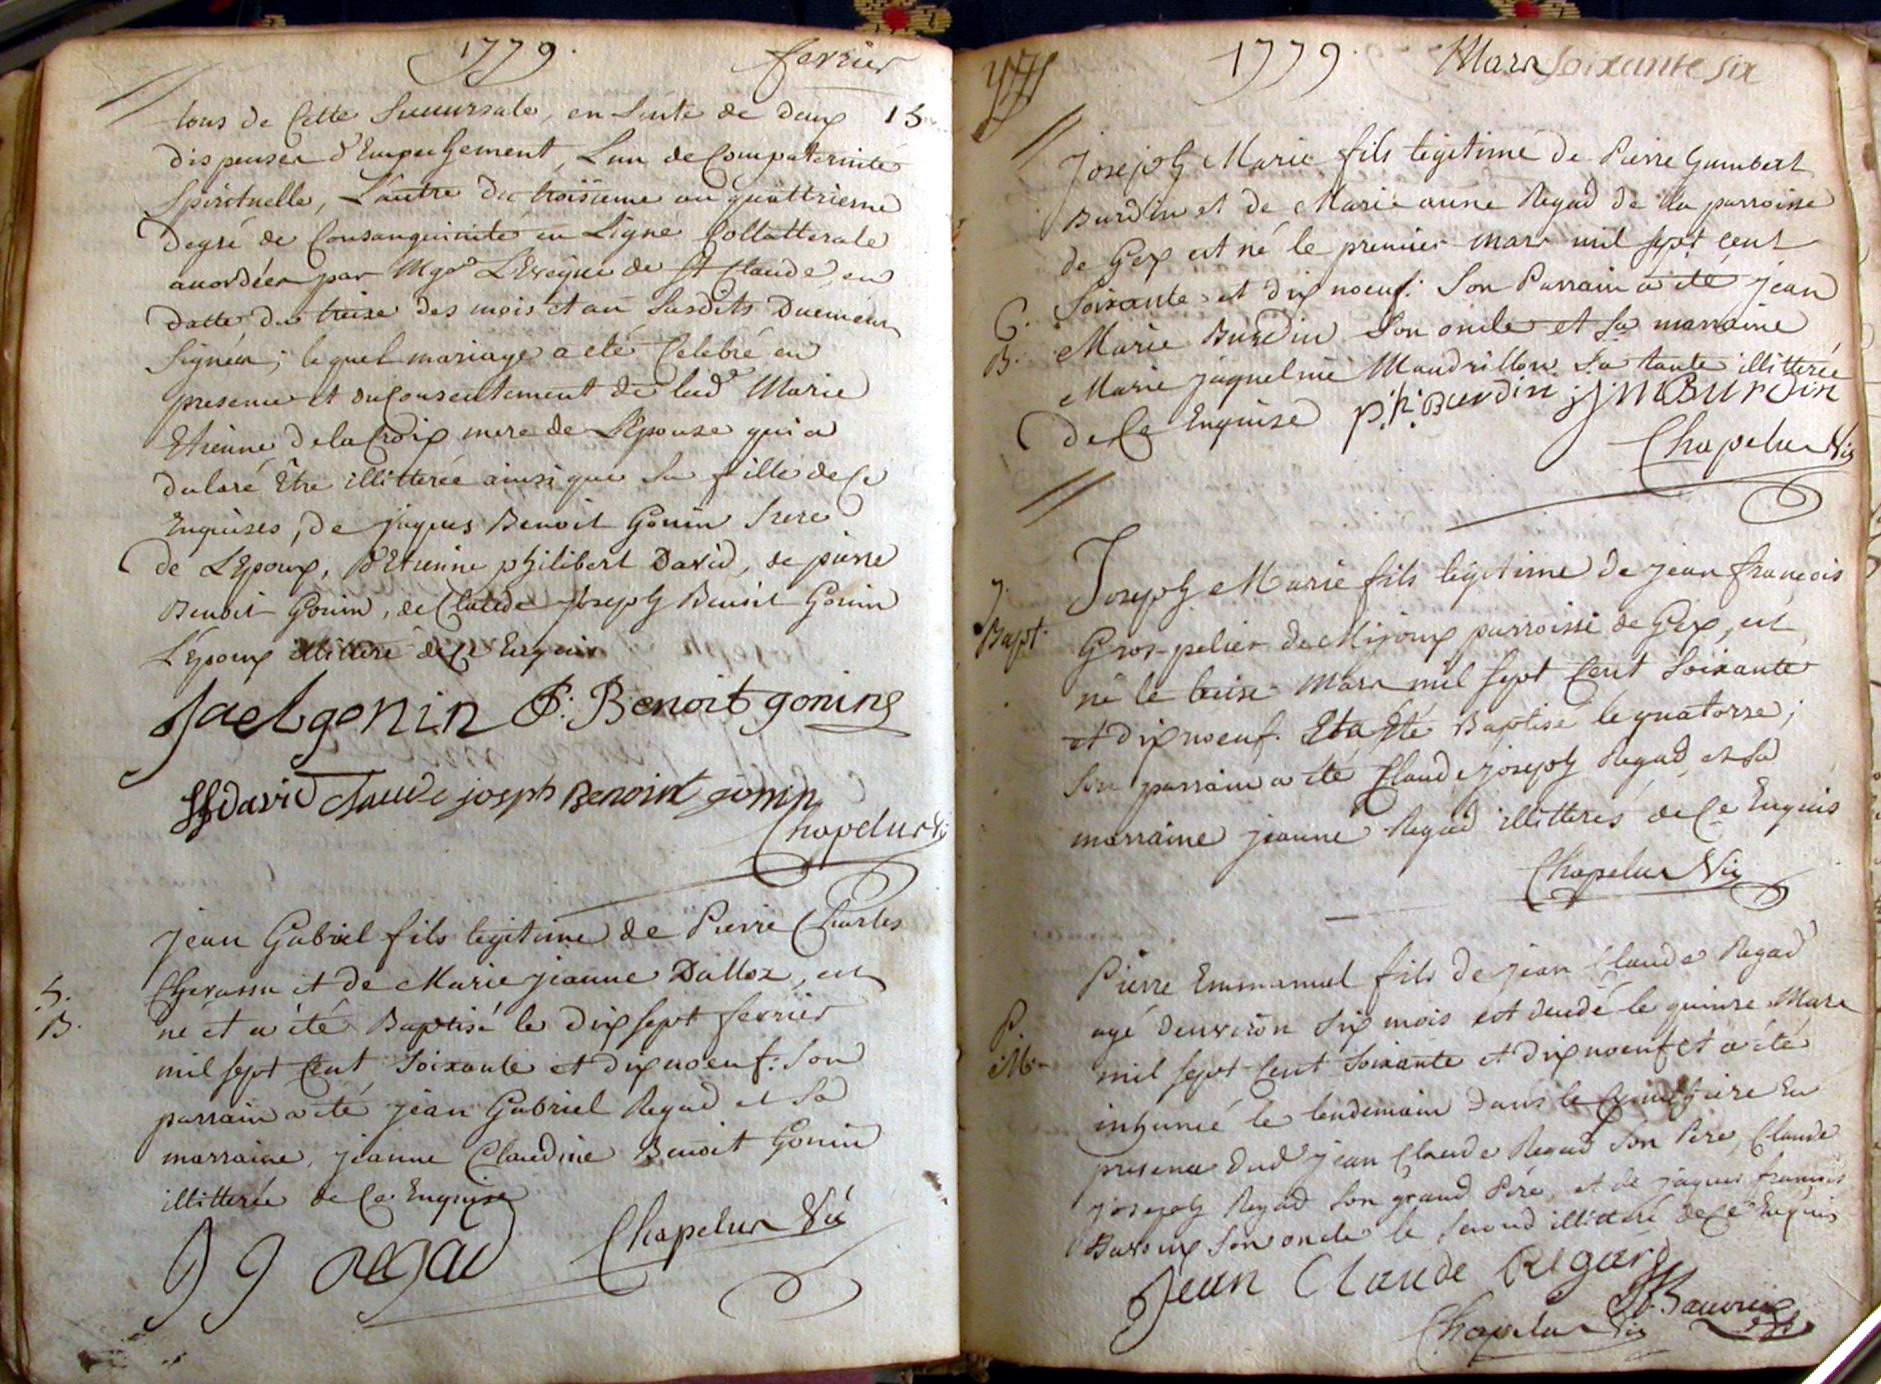 1779. fevrier
tous de Cette Succursale, en Suite de deux 15
dispenses d'Empechement, L'un de Compaternité
Spirituelle, L'autre du troisieme au quattrieme
Degré de Consanguinité en Ligne Collatterale
accordées par Mgr L'Eveque de St Claude, en
datte du treize des mois et an Susdits Duement
Signées; lequel mariage a eté Celebré en
presence et du Consentement de lad.e Marie
Etienne Delacroix mere de L'Epouse qui a
declaré Etre illitterée ainsi que Sa fille de Ce
Enquises, de jaques Benoit Gonin frere
de L'Epoux, d'Etienne philibert David, de pierre
Benoit Gonin, de Claude joseph Benoit Gonin
L'Epoux illitteré de Ce Enquis
Jac b gonin P: Benoit gonin
David Claude joseph Benoit gonin
Chapelus Vic
jean Gabriel fils legitime de Pierre Charles
Chevassu et de Marie jeanne Dalloz, est
5.
B.
né et a été Baptisé le dix sept fevrier
mil sept Cent Soixante et dix noeuf: Son
parrain a été jean Gabriel Regad et Sa
marraine, jeanne Claudine Benoit Gonin
illitterée de Ce Enquise
J J Regad Chapelus Vic
1779. Mars Soixante six
Joseph Marie fils legitime de Pierre Humbert
Burdin et de Marie anne Regad de la parroisse
de Gex est né le premier mars mil sept cent
Soixante et dix noeuf: Son Parrain a été jean
6.
B.
Marie Burdin Son oncle et Sa marraine
Marie jaqueline Maudrillon Sa tante illitterée
de Ce Enquise p: h: Burdin j m Burdin
Chapelus Vic
Joseph Marie fils légitime de jean françois
7.
Bapt.
Gros-pelier de Mijoux parroisse de Gex, est
né le treise Mars mil sept Cent Soixante
et dix noeuf. Et a Eté Baptisé le quatorze;
Son parrain a été Claude joseph Regad, et Sa
marraine jeanne Regad illitterés de Ce Enquis
Chapelus Vic
Pierre Emmanuel fils de jean Claude Regad
agé denviron Six mois est decédé le quinze Mars
P.
M.
mil sept Cent Soixante et dix noeuf et a été
inhumé le lendemain dans le Cymettiere En
presence dud jean Claude Regad Son Pere, Claude
joseph Regad Son grand Pere, et de jaques francois
Son oncle le Second illitteré de Ce Enquis
Jean Claude Regard
Chapelus Vic